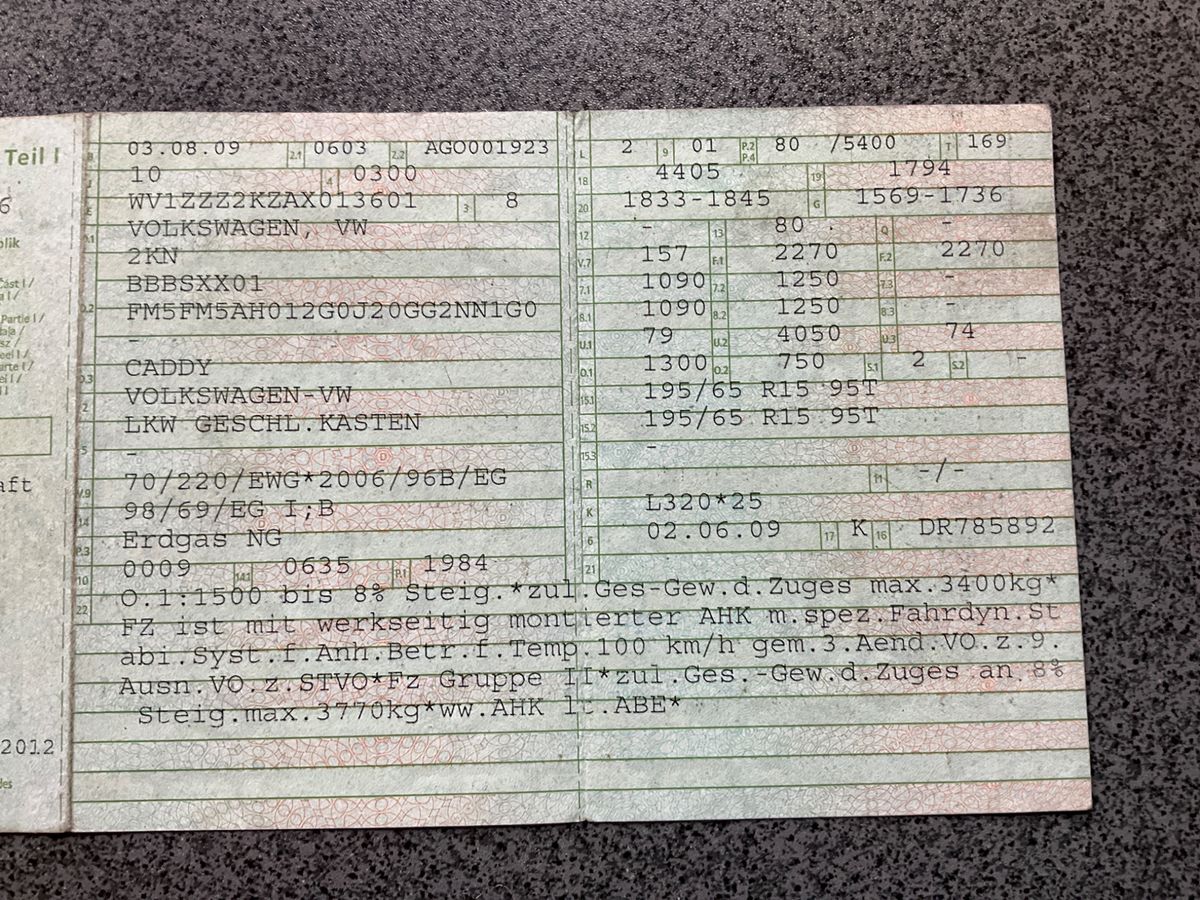 Teil I
6
blik
Část I /
a I /
Partie I /
daļa /
sz /
eel I /
arte I /
ei I /
aft
2012
des
B 03.08.09 2.1 0603 2.2 AGO001923
J 10 4 0300
E WV1ZZZ2KZAX013601 3 8
D.1 VOLKSWAGEN, VW
2KN
BBBSXX01
D.2 FM5FM5AH012G0J20GG2NN1G0
-
D.3 CADDY
2 VOLKSWAGEN-VW
LKW GESCHL.KASTEN
5 -
V.9 70/220/EWG*2006/96B/EG
14 98/69/EG I;B
P.3 Erdgas NG
10 0009 14.1 0635 P.1 1984
L 2 9 01 P.2 P.4 80 /5400 T 169
18 4405 19 1794
20 1833-1845 G 1569-1736
12 - 13 80 Q -
V.7 157 F.1 2270 F.2 2270
7.1 1090 7.2 1250 7.3 -
8.1 1090 8.2 1250 8.3 -
U.1 79 U.2 4050 U.3 74
O.1 1300 O.2 750 S.1 2 S.2 -
15.1 195/65 R15 95T
15.2 195/65 R15 95T
15.3 -
R 11 -/-
K L320*25
6 02.06.09 17 K 16 DR785892
21
22 O.1:1500 bis 8% Steig.*zul.Ges-Gew.d.Zuges max.3400kg*
FZ ist mit werkseitig montierter AHK m.spez.Fahrdyn.St
abi.Syst.f.Anh.Betr.f.Temp.100 km/h gem.3.Aend.VO.z.9.
Ausn.VO.z.STVO*Fz Gruppe II*zul.Ges.-Gew.d.Zuges an 8%
Steig.max.3770kg*ww.AHK lt.ABE*